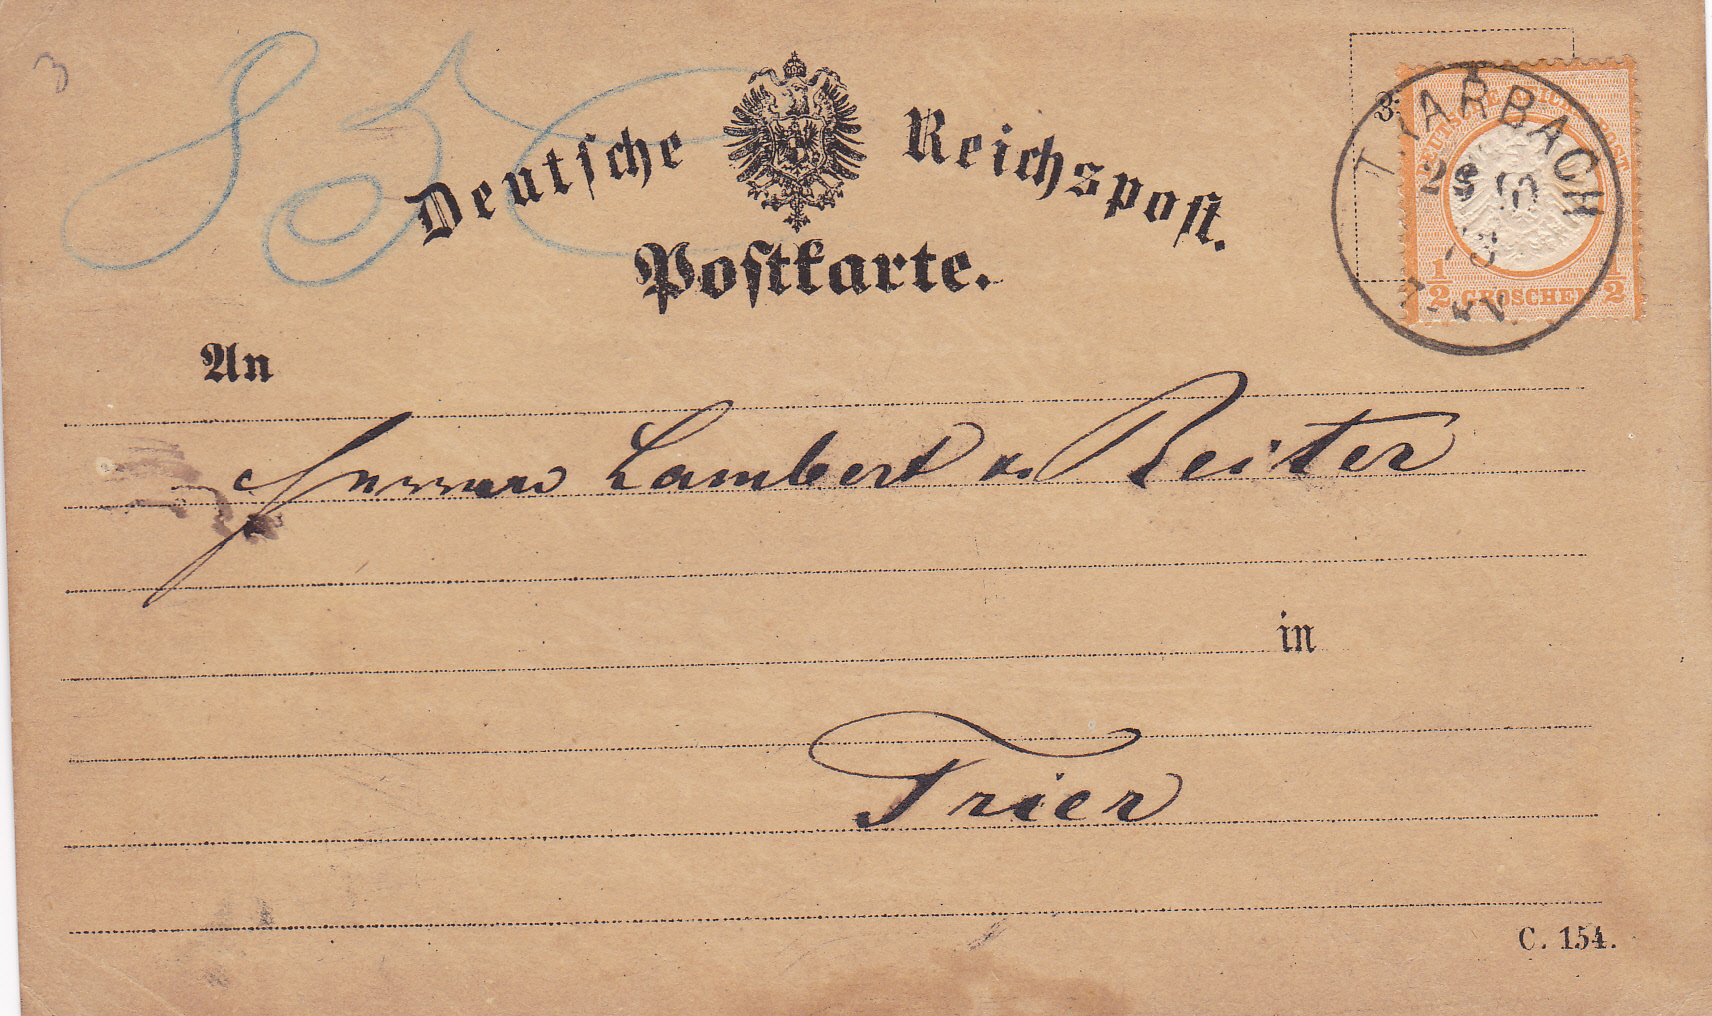 3
85
Deutsche Reichspost.
Postkarte.
TRARBACH
28 10
73
DEUTSCHE REICHS-POST
½ GROSCHEN ½
An
Herrren Lambert & Reiter
in
Trier
C. 154.